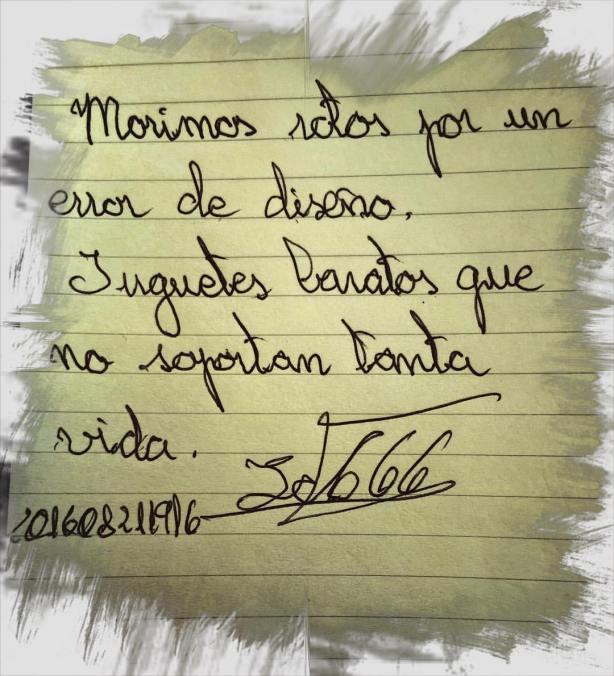 Morimos rotos por un
error de diseño.
Juguetes baratos que
no soportan tanta
vida.
666